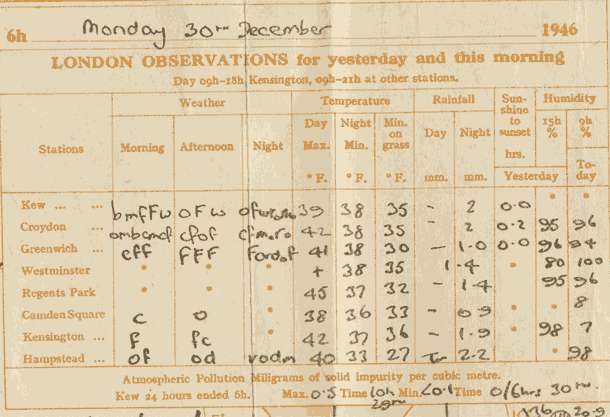 6h Monday 30TH December 1946
LONDON OBSERVATIONS for yesterday and this morning
Day 09h-18h Kensington, 09h-21h at other stations.
Stations Weather Temperature Rainfall Sun-shine to sunset hrs. Humidity
Morning Afternoon Night Day Max. Night Min. Min. on grass Day Night 15h % 9h %
° F. ° F. ° F. mm. mm. Yesterday To-day
Kew ... ... bmfFw oFw 39 38 35 - 2 0.0
Croydon ... ombcmcf cfof 42 38 35 - 2 0.2 95 96
Greenwich ... cff FFF 41 38 30 - 1.0 0.0 96 94
Westminster + 38 35 1.4 80 100
Regents Park 45 37 32 - 1.4 95 96
Camden Square c o 38 36 33 - 0.9 8
Kensington ... f fc 42 37 36 - 1.9 98 7
Hampstead ... of od rodm 40 33 27 Tr 2.2 98
Atmospheric Pollution Miligrams of solid impurity per cubic metre.
Kew 24 hours ended 6h. Max. 0.5 Time 10h Min. <0.1 Time 0/6hrs 30TH
29TH